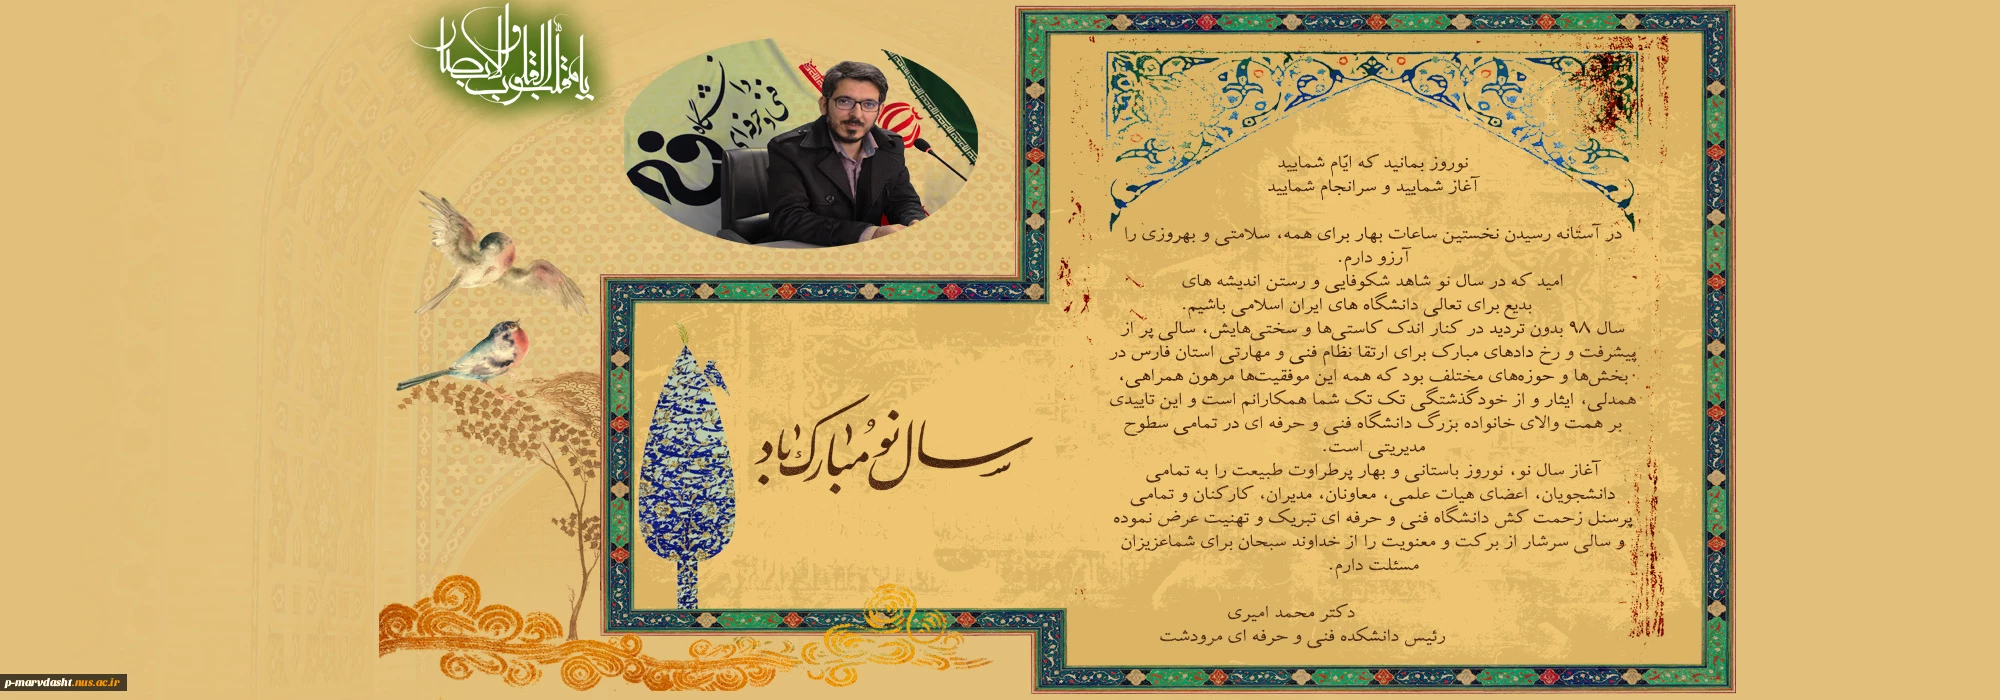 یا مقلب القلوب و الابصار
دانشگاه
فنی و حرفه ای
نوروز بمانید که ایّام شمایید
آغاز شمایید و سرانجام شمایید
در آستانه رسیدن نخستین ساعات بهار برای همه، سلامتی و بهروزی را
آرزو دارم.
امید که در سال نو شاهد شکوفایی و رستن اندیشه های
بدیع برای تعالی دانشگاه های ایران اسلامی باشیم.
سال ۹۸ بدون تردید در کنار اندک کاستی‌ها و سختی‌هایش، سالی پر از
پیشرفت و رخ دادهای مبارک برای ارتقا نظام فنی و مهارتی استان فارس در
بخش‌ها و حوزه‌های مختلف بود که همه این موفقیت‌ها مرهون همراهی،
همدلی، ایثار و از خودگذشتگی تک تک شما همکارانم است و این تاییدی
بر همت والای خانواده بزرگ دانشگاه فنی و حرفه ای در تمامی سطوح
مدیریتی است.
آغاز سال نو، نوروز باستانی و بهار پرطراوت طبیعت را به تمامی
دانشجویان، اعضای هیات علمی، معاونان، مدیران، کارکنان و تمامی
پرسنل زحمت کش دانشگاه فنی و حرفه ای تبریک و تهنیت عرض نموده
و سالی سرشار از برکت و معنویت را از خداوند سبحان برای شماعزیزان
مسئلت دارم.
دکتر محمد امیری
رئیس دانشکده فنی و حرفه ای مرودشت
سال نو مُبارک باد
p-marvdasht.nus.ac.ir